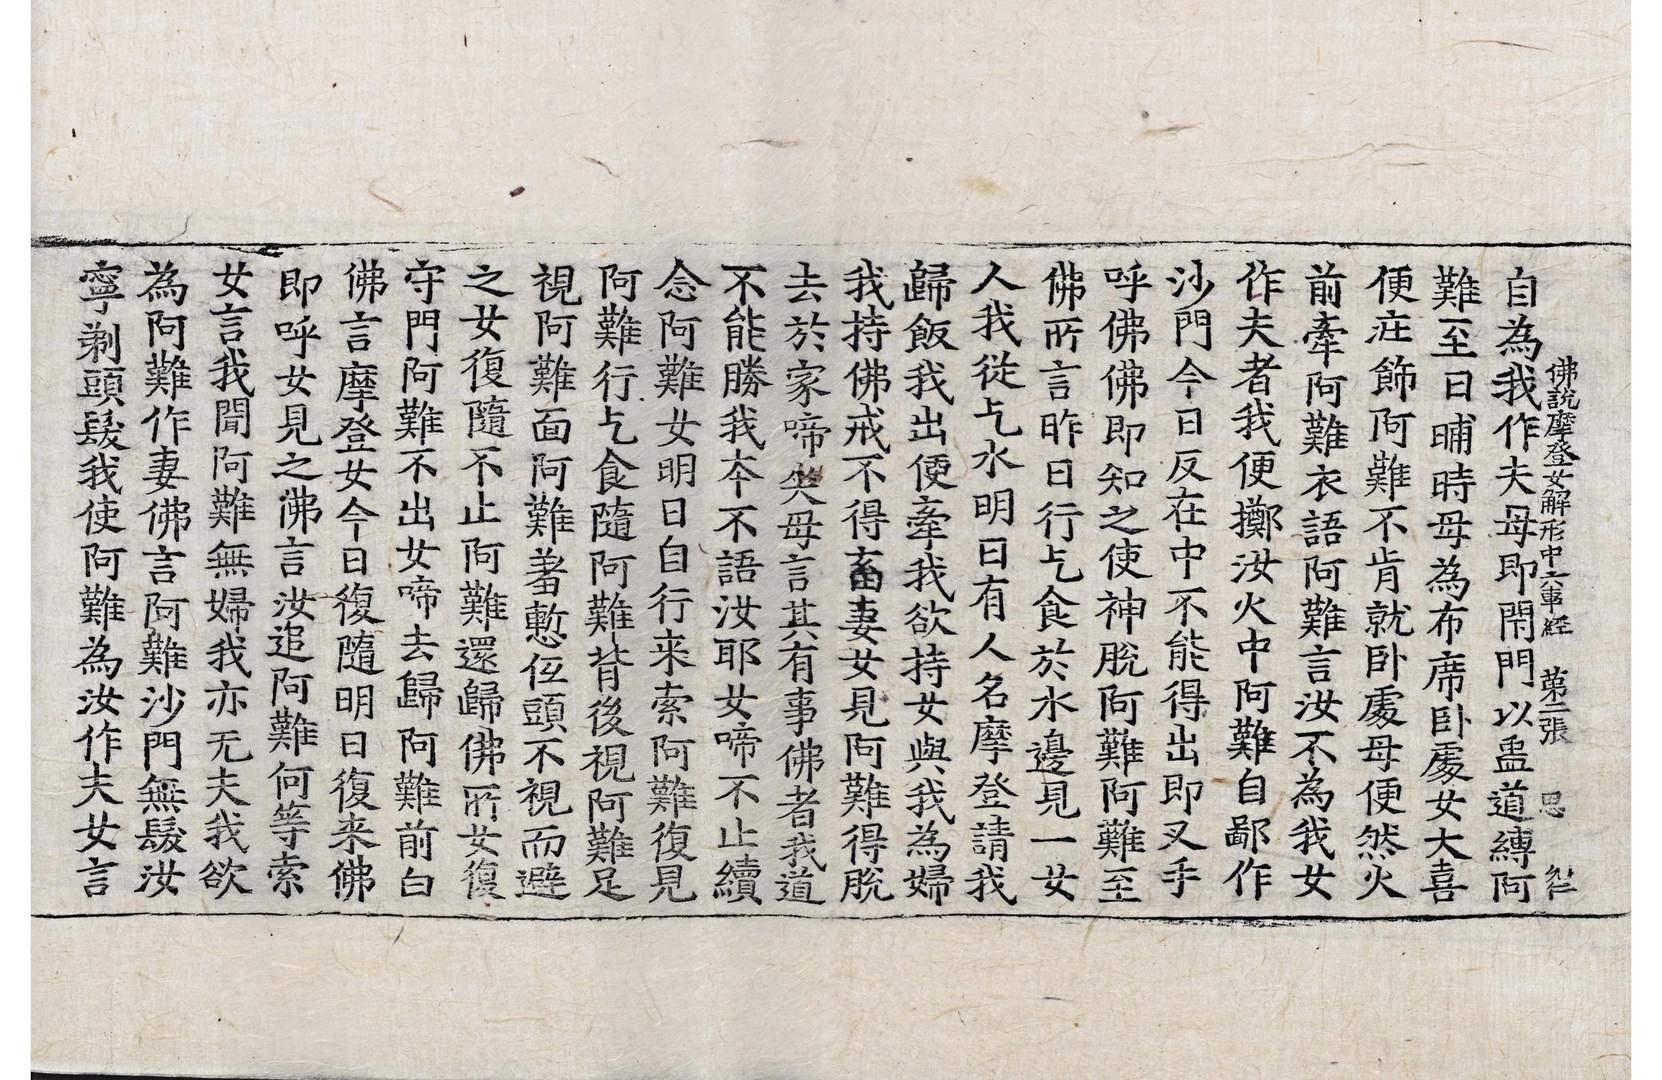 佛說摩登女解形中六事経　第二張　思
自為我作夫母即閇門以蛊道縛阿
難至日晡時母為布席卧䖏女大喜
便庄飾阿難不肯就卧䖏母便然火
前牽阿難衣語阿難言汝不為我女
作夫者我便擲汝火中阿難自鄙作
沙門今日反在中不能得出即叉手
呼佛佛即知之使神脫阿難阿難至
佛所言昨日行乞食於水邊見一女
人我從乞水明日有人名摩登請我
歸飯我出便牽我欲持女與我為婦
我持佛戒不得畜妻女見阿難得脫
去於家啼哭母言其有事佛者我道
不能勝我夲不語汝耶女啼不止續
念阿難女明日自行来索阿難復見
阿難行乞食隨阿難背後視阿難足
視阿難面阿難羞慙低頭不視而避
之女復隨不止阿難還歸佛所女復
守門阿難不出女啼去歸阿難前白
佛言摩登女今日復隨明日復来佛
即呼女見之佛言汝追阿難何等索
女言我聞阿難無婦我亦无夫我欲
為阿難作妻佛言阿難沙門無髮汝
寧剃頭髮我使阿難為汝作夫女言